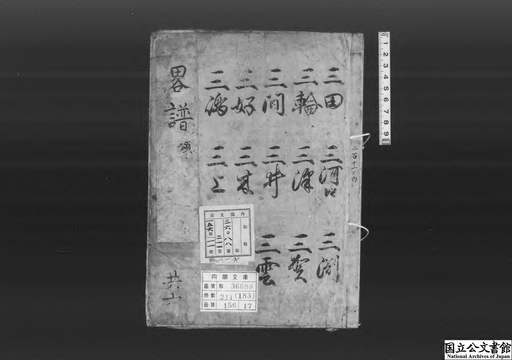 三田 三河口 三渕
三輪 三澤 三賀
三間 三井 三雲
三好 三
三嶋 三上
畧譜
共十
内閣文庫
番号 和 36688
冊数 211 (183)
函号 156 17
1 2 3 4 5 6 7 8 9
国立公文書館
National Archives of Japan